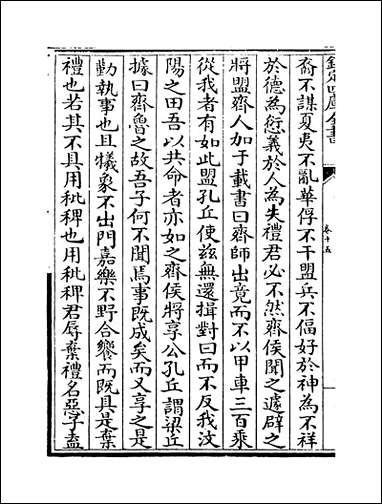 欽定四庫全書
卷十五
裔不謀夏夷不亂華俘不干盟兵不偪好於神為不祥
於德為愆義於人為失禮君必不然齊侯聞之遽辟之
將盟齊人加于載書曰齊師出竟而不以甲車三百乗
從我者有如此盟孔丘使兹無還揖對曰而不反我汶
陽之田吾以共命者亦如之齊侯將享公孔丘謂梁丘
據曰齊魯之故吾子何不聞焉事既成矣而又享之是
勤執事也且犧象不出門嘉樂不野合饗而既具是棄
禮也若其不具用秕稗也用秕稗君辱棄禮名惡子盍